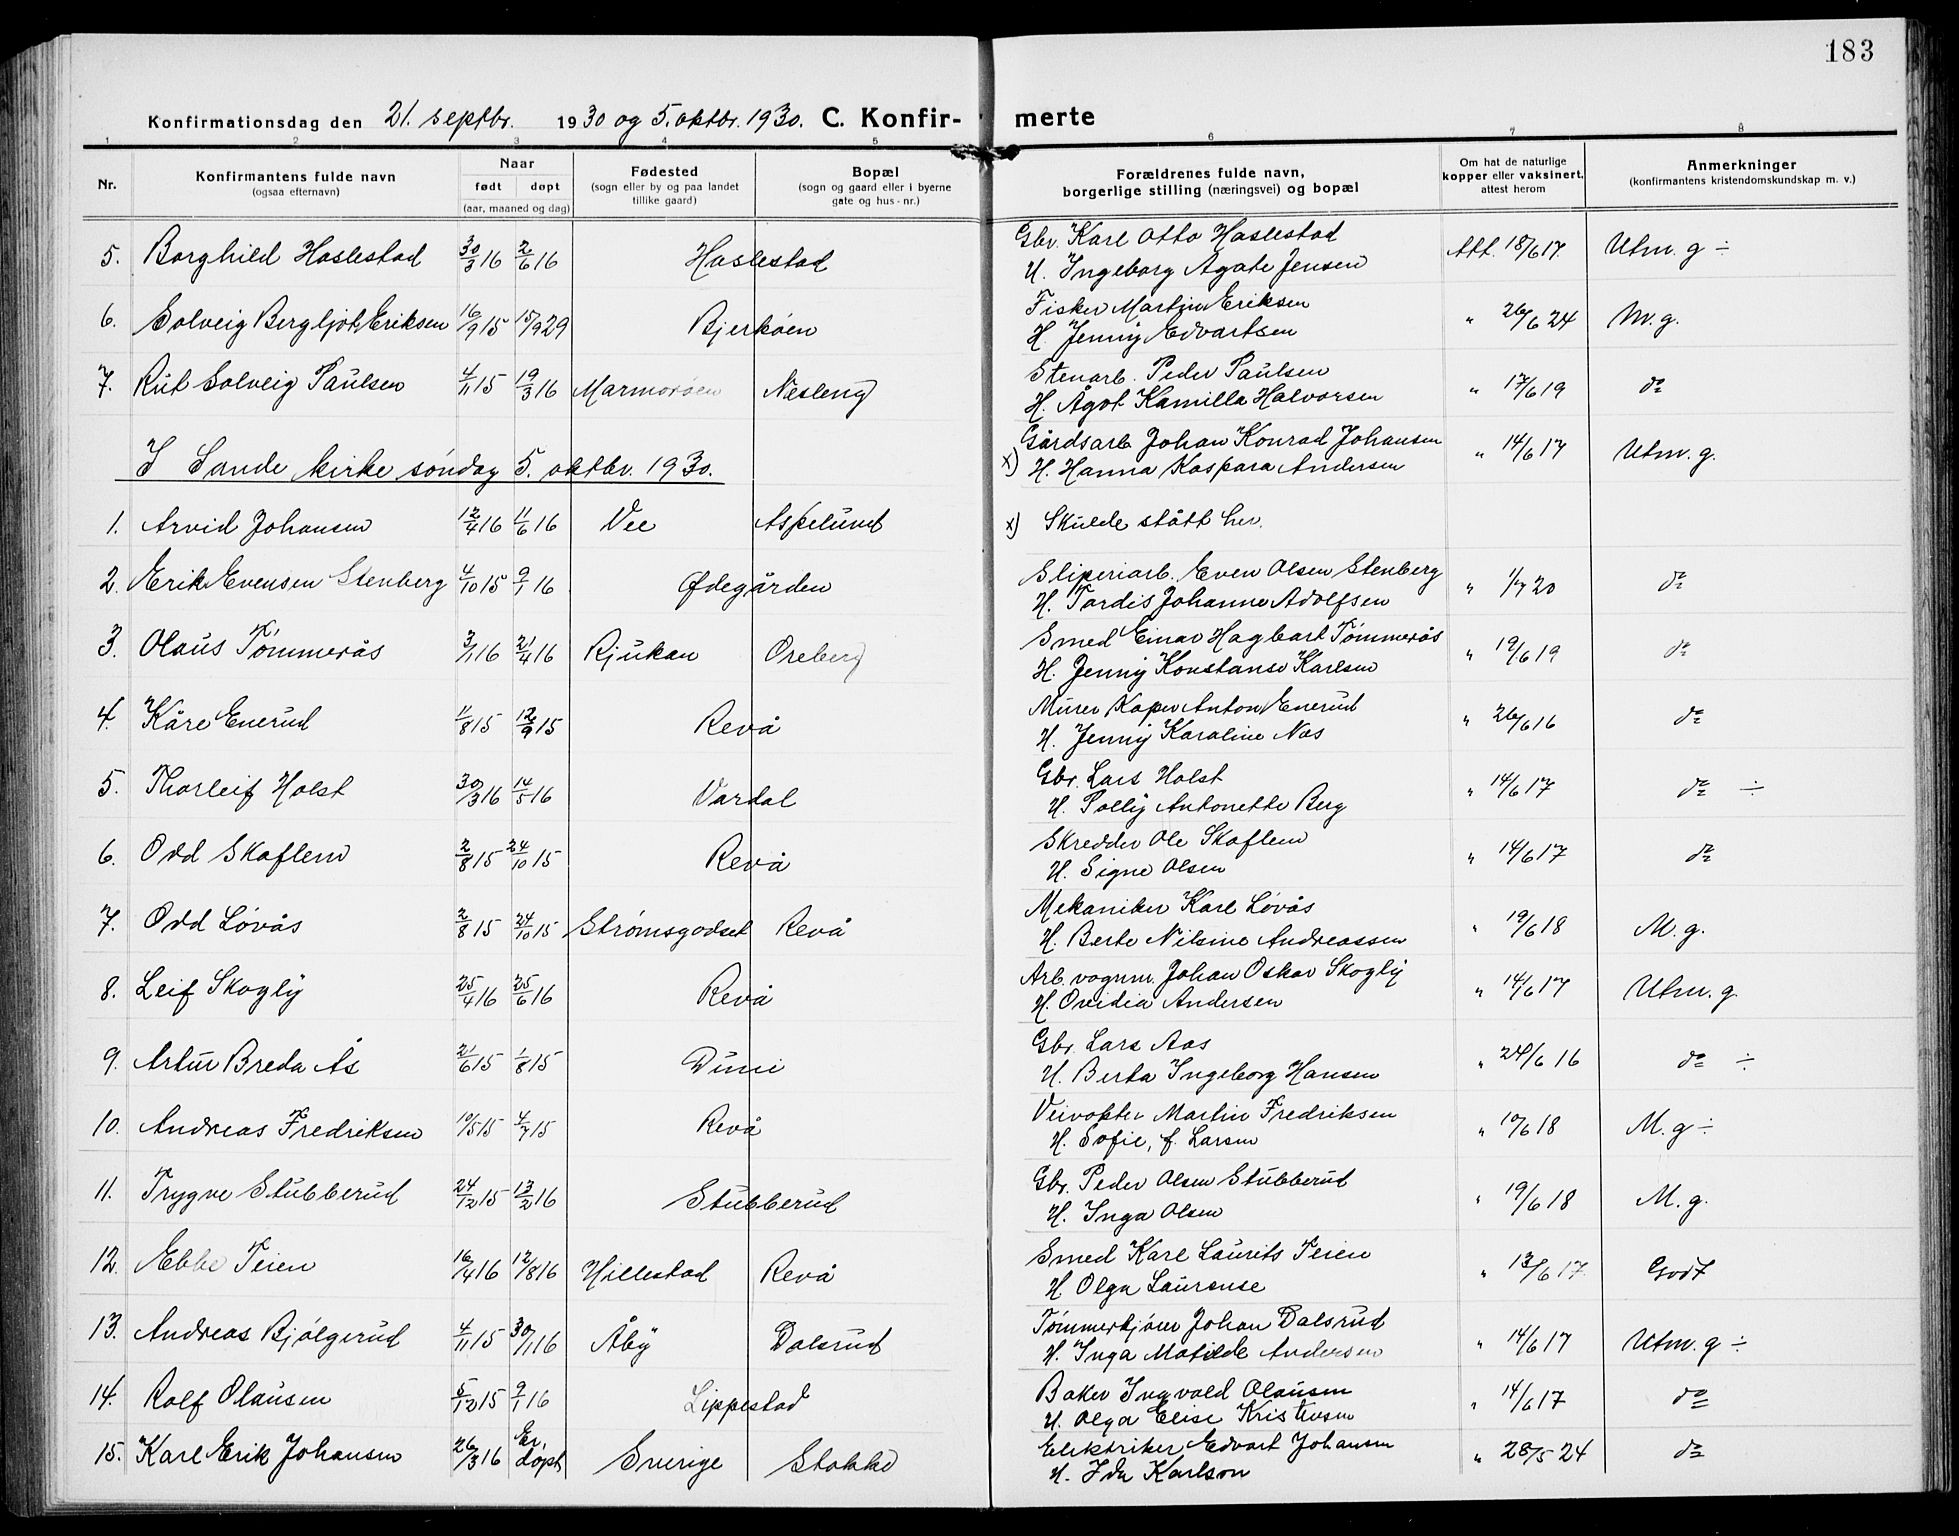 183
Konfirmationsdag den 21. septbr. 1930 og 5. oktbr. 1930. C. Konfir- merte
1 2 3 4 5 6 7 8
Nr. Konfirmantens fulde navn (ogsaa efternavn) Naar født døpt (aar, maaned og dag) Fødested (sogn eller by og paa landet tillike gaard) Bopæl (sogn og gaard eller i byerne gate og hus-nr.) Forældrenes fulde navn, borgerlige stilling (næringsvei) og bopæl Om hat de naturlige kopper eller vaksinert, attest herom Anmerkninger (konfirmantens kristendomskundskap m. v.)
5. Borghild Haslestad 30/3 16 2/6 16 Haslestad Gbr. Karl Otto Haslestad Att. 18/6 17. Utm. g ÷
H. Ingeborg Agate Jensen
6. Solveig Bergljot Eriksen 16/9 15 15/9 29 Bjerkøen Fisker Martin Eriksen " 26/6 24 M. g.
H. Jenny Edvartsen
7. Rut Solveig Paulsen 4/11 15 19/3 16 Marmorøen Nesleng Stenarb. Peder Paulsen " 17/6 19 do
H. Ågot Kamilla Halvorsen
I Sande kirke søndag 5. oktbr. 1930. x) Gårdsarb. Johan Konrad Johansen " 14/6 17 Utm. g.
H. Hanna Kaspara Andersen
1. Arvid Johansen 12/4 16 11/6 16 Vee Aspelund x) Skulde stått her.
2. Erik Evensen Stenberg 4/10 15 9/1 16 Ødegården Sliperiarb. Even Olsen Stenberg " 1/7 20 do
H. Tordis Johanne Adolfsen
3. Olaus Tømmerås 3/1 16 21/4 16 Rjukan Oreberg Smed Einar Hagbart Tømmerås " 19/6 19 do
H. Jenny Konstanse Karlsen
4. Kåre Enerud 11/8 15 12/9 15 Revå Murer Anton Enerud " 26/6 16 do
H. Jenny Karoline Næs
5. Thorleif Holst 30/3 16 14/5 16 Vardal Gbr. Lars Holst " 14/6 17 do ÷
H. Polly Antonette Berg
6. Odd Skaflem 2/8 15 24/10 15 Revå Skredder Ole Skaflem " 14/6 17 do
H. Signe Olsen
7. Odd Løvås 2/8 15 24/10 15 Strømsgodset Revå Mekaniker Karl Løvås " 19/6 18 M. g.
H. Berte Nilsine Andreassen
8. Leif Skogly 25/4 16 25/6 16 Revå Arb. vognm. Johan Oskar Skogly " 14/6 17 Utm. g.
H. Ovidia Andersen
9. Artur Breda Ås 21/6 15 1/8 15 Duni Gbr. Lars Aas " 24/6 16 do ÷
H. Berta Ingeborg Hansen
10. Andreas Fredriksen 10/5 15 4/7 15 Revå Veivokter Martin Fredriksen " 10/6 18 M. g ÷
H. Sofie, f. Larsen
11. Trygve Stubberud 24/12 15 13/2 16 Stubberud Gbr. Peder Olsen Stubberud " 19/6 18 M. g.
H. Inga Olsen
12. Ebbe Teien 16/4 16 12/8 16 Hillestad Revå Smed Karl Laurits Teien " 13/6 17. Godt
H. Olga Laurense
13. Andreas Bjølgerud 4/11 15 30/1 16 Åby Dalsrud Tømmerkjører Johan Dalsrud " 14/6 17 Utm. g ÷
H. Inga Matilde Andersen
14. Rolf Olausen 5/12 15 9/1 16 Lippestad Baker Ingvald Olausen " 14/6 17 do
H. Olga Elise Kristensen
15. Karl Erik Johansen 26/3 16 Er døpt Sverige Stokke Elektriker Edvart Johansen " 28/5 24 do
H. Ida Karlson